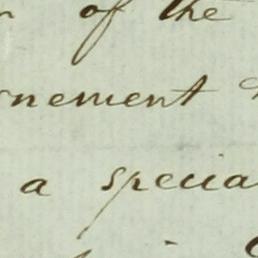 of the
nement
a specia